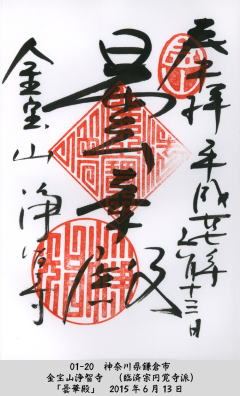 奉拝 平成廿七年六月十三日
曇華殿
金宝山 浄智寺
01-20 神奈川県鎌倉市
金宝山浄智寺 (臨済宗円覚寺派)
「曇華殿」 2015年6月13日